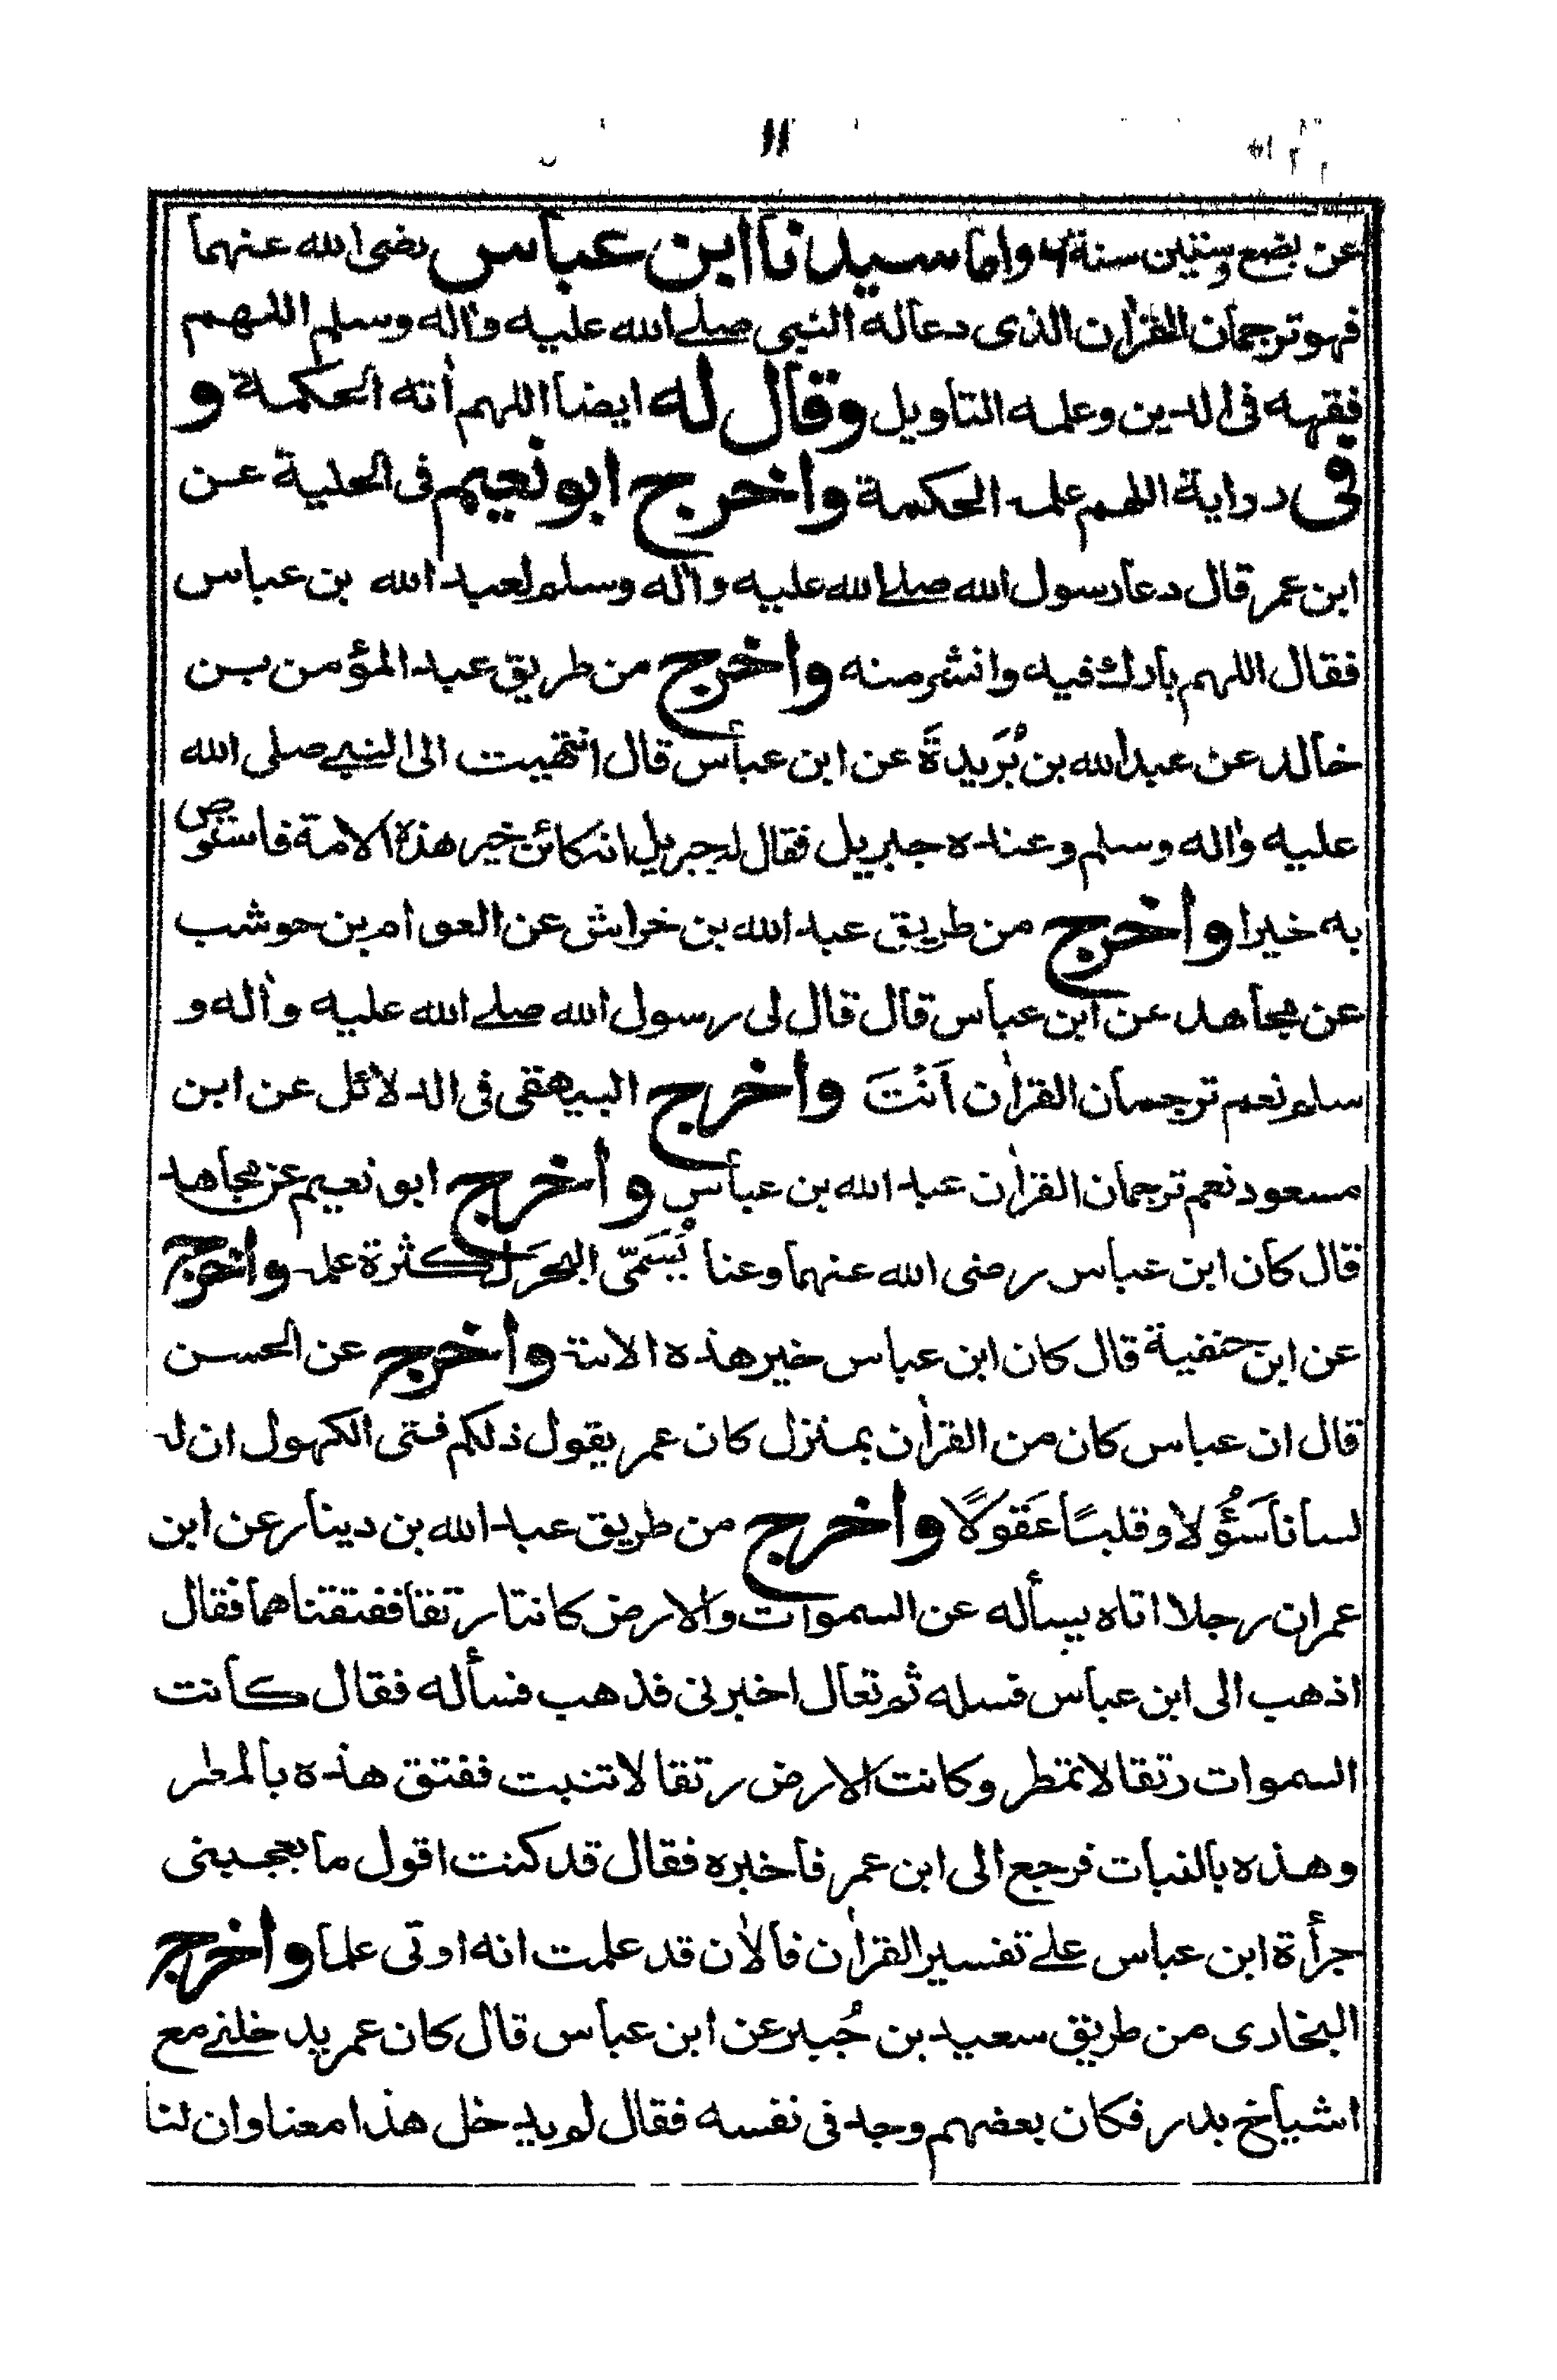 ١١
عن بضع وستين سنة واما سيدنا ابن عباس رضى الله عنهما
فهو ترجمان القرأن الذى دعا له النبي صلے الله عليه وأله وسلم اللهم
فقهه فى الدين وعلمه التاويل وقال له ايضا اللهم أته الحكمة و
فى رواية اللهم علمه الحكمة واخرج ابو نعيم فى الحلية عن
ابن عمر قال دعا رسول الله صلے الله عليه وأله وسلم لعبد الله بن عباس
فقال اللهم بارك فيه وانشر منه واخرج من طريق عبد المؤمن بن
خالد عن عبد الله بن بُرَيدةَ عن ابن عباس قال انتهيت الى النبي صلى الله
عليه وأله وسلم وعنده جبريل فقال له جبريل انه كائن خير هذه الامة فاستوص
به خيرا واخرج من طريق عبد الله بن خراش عن العوام بن حوشب
عن مجاهد عن ابن عباس قال قال لى رسول الله صلے الله عليه وأله و
سلم نعم ترجمان القرأن اَنْتَ واخرج البيهقى فى الدلائل عن ابن
مسعود نعم ترجمان القرأن عبد الله بن عباس واخرج ابو نعيم عن مجاهد
قال كان ابن عباس رضى الله عنهما وعنا يُسَمّى البحرَ لكثرة علمه واخرج
عن ابن حنفية قال كان ابن عباس خير هذه الامة واخرج عن الحسن
قال ان عباس كان من القرأن بمنزل كان عمر يقول ذلكم فتى الكهول ان له
لسانا سَؤُلا وقلبًا عَقولًا واخرج من طريق عبد الله بن دينار عن ابن
عمر ان رجلا اتاه يسأله عن السموات والارض كانتا رتقا ففتقناهما فقال
اذهب الى ابن عباس فسله ثم تعال اخبرنى فذهب فسأله فقال كانت
السموات رتقا لا تمطر وكانت الارض رتقا لا تنبت ففتق هذه بالمطر
وهذه بالنبات فرجع الى ابن عمر فاخبره فقال قد كنت اقول ما يعجبنى
جرأة ابن عباس علے تفسير القرأن فالأن قد علمت انه اوتى علما واخرج
البخارى من طريق سعيد بن جُبير عن ابن عباس قال كان عمر يدخلنے مع
اشياخ بدر فكان بعضهم وجد فى نفسه فقال لم يدخل هذا معنا وان لنا